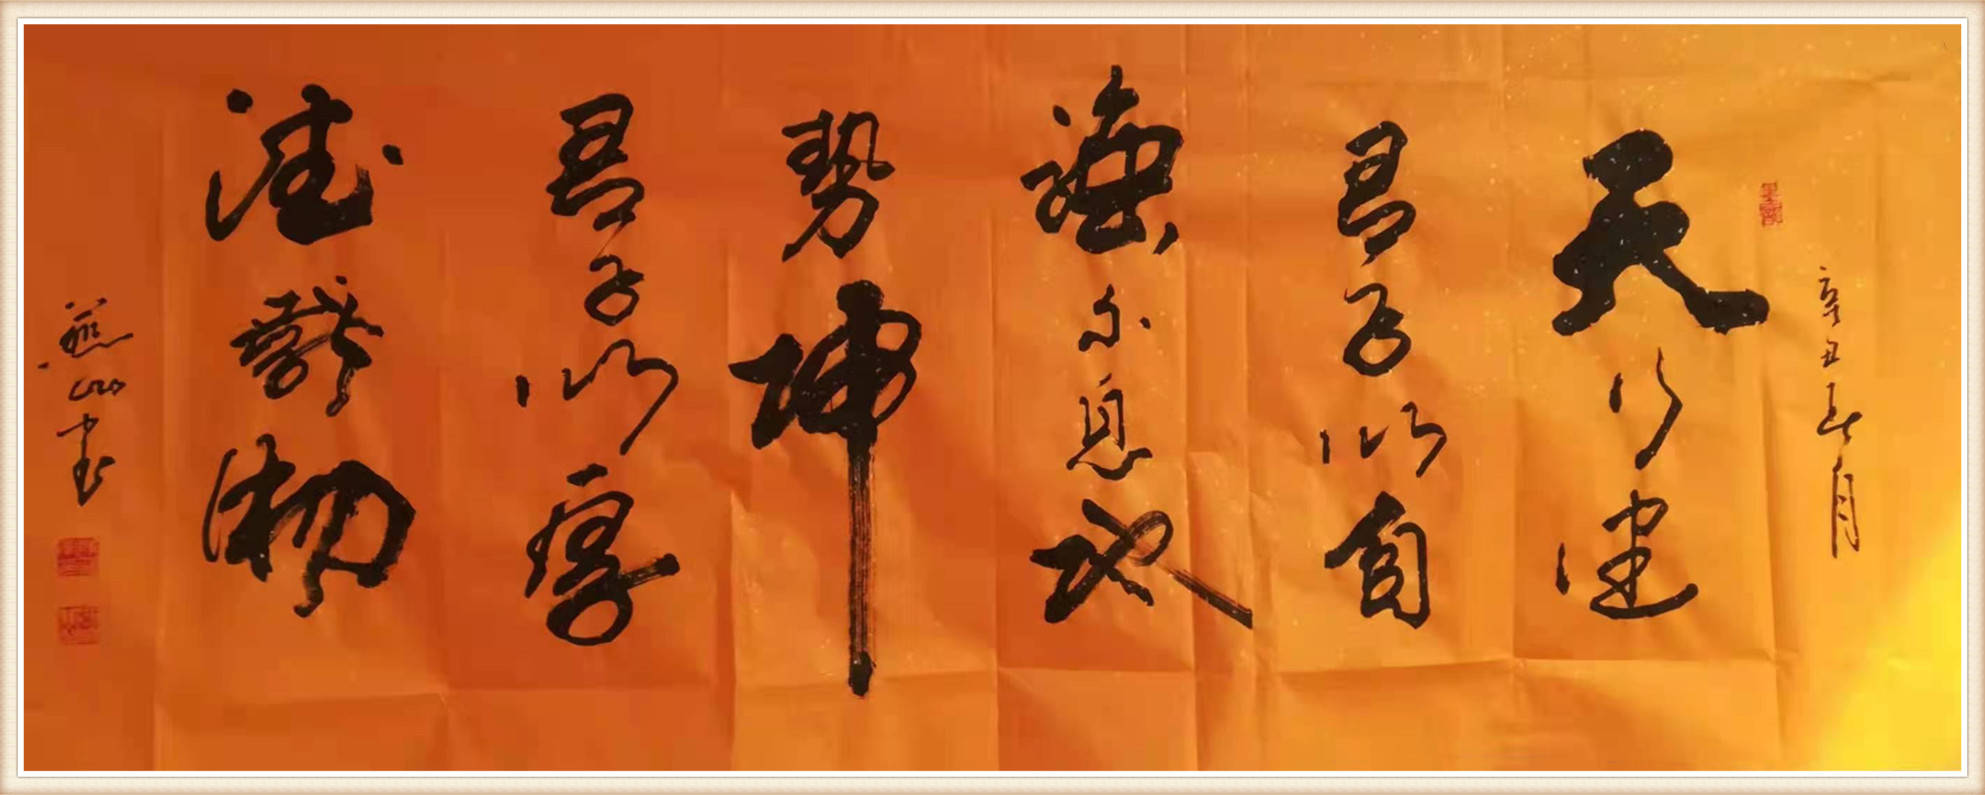 辛丑春月
天行健
君子以自
强不息地
势坤
君子以厚
德载物
燕山书